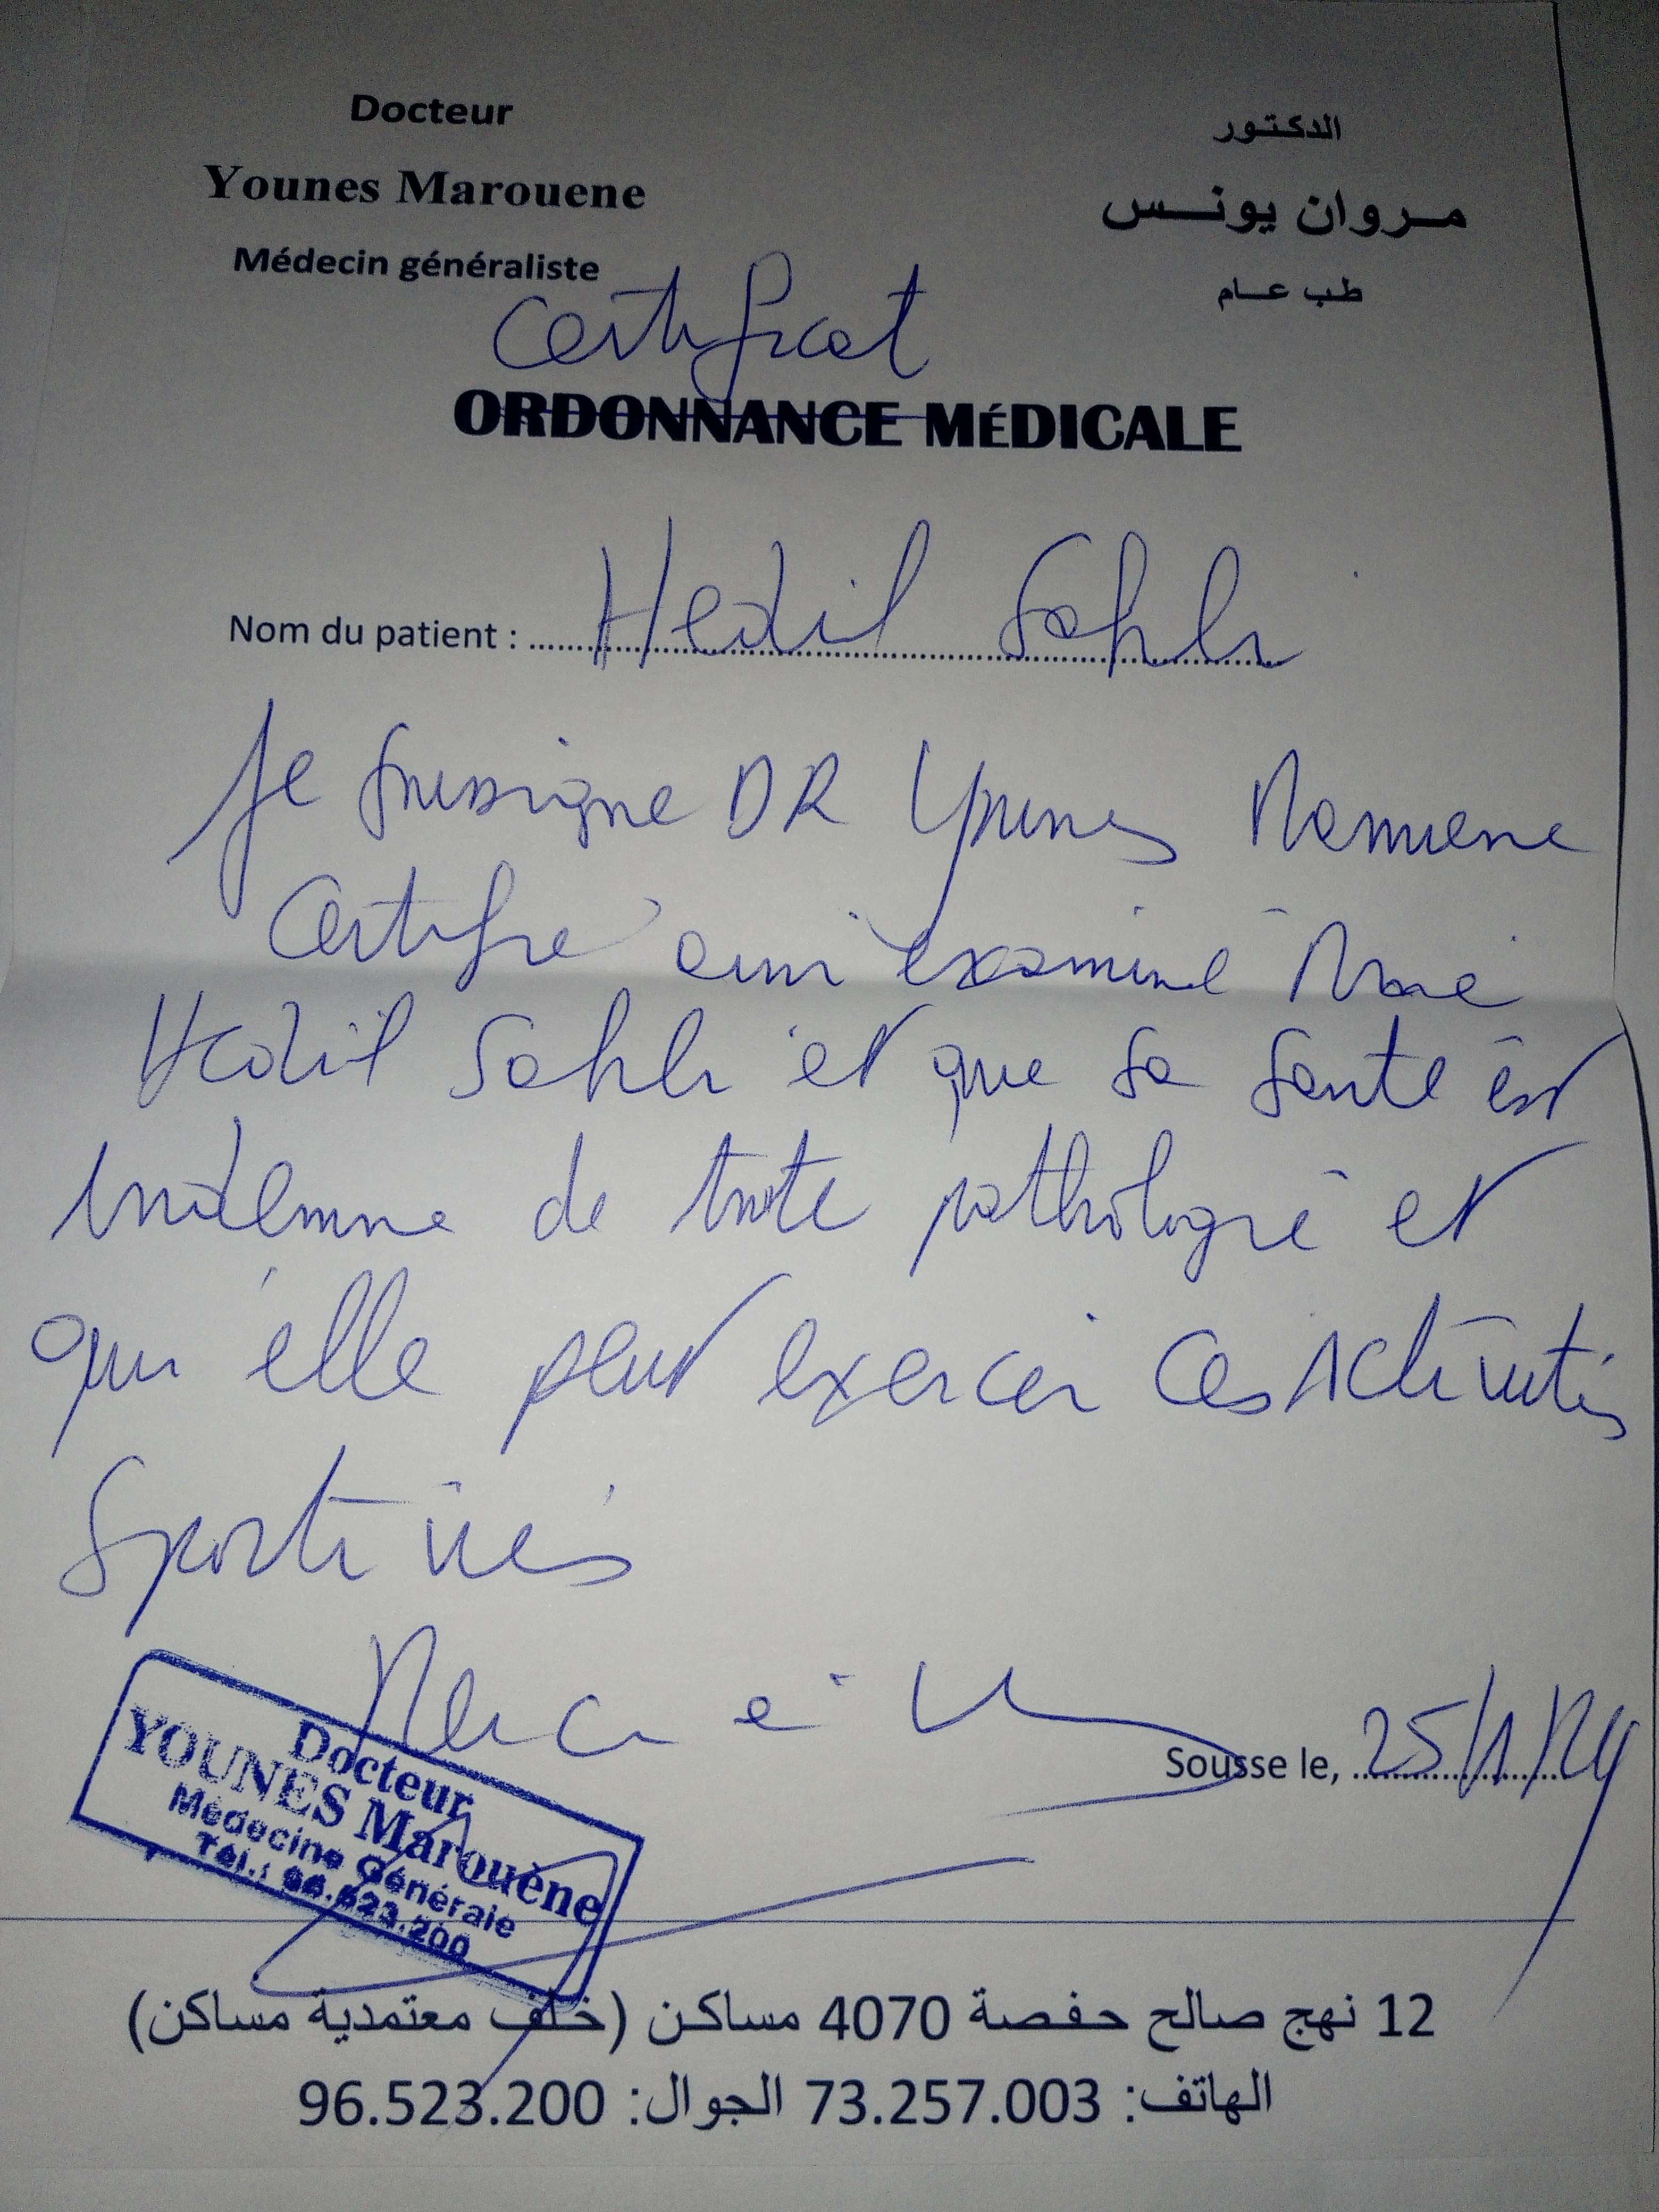 Docteur
Younes Marouene
Médecin généraliste
الدكتور
مروان يونس
طب عام
Certificat
ORDONNANCE MÉDICALE
Nom du patient : Hedil Sahli
Je soussigné DR Younes Marouene
Certifie avoir examiné Mme
Hedil Sahli et que sa santé est
indemne de toute pathologie et
qu'elle peut exercer ces activités
Sportives
Docteur
YOUNES Marouène
Médecine Générale
Tél.: 96.523.200
Sousse le, 25/1/24
12 نهج صالح حفصة 4070 مساكن (خلف معتمدية مساكن)
الهاتف: 73.257.003 الجوال: 96.523.200